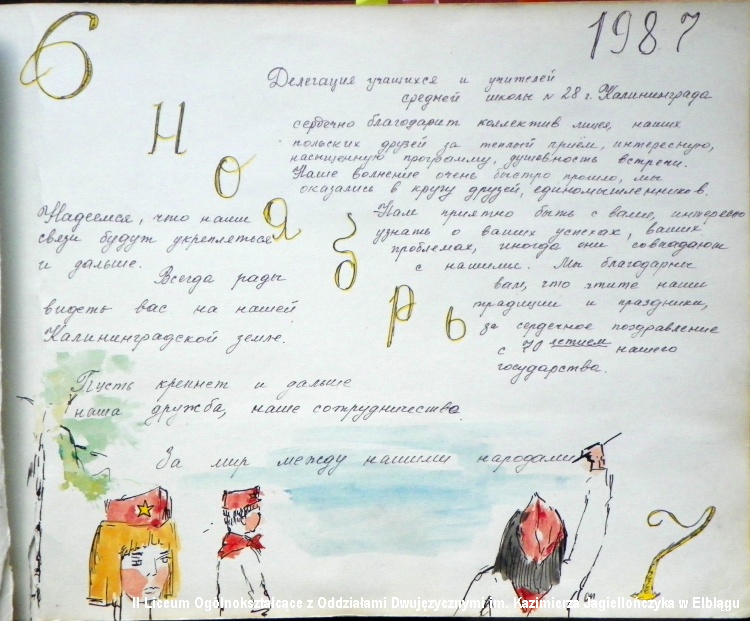 6 ноябрь 1987
Делегация учащихся и учителей
средней школы N 28 г. Калининграда
сердечно благодарит коллектив лицея, наших
польских друзей за теплый приём, интересную,
насыщенную программу, душевность встречи.
Наше волнение очень быстро прошло, мы
оказались в кругу друзей, единомышленников.
Нам приятно быть с вами, интересно
узнать о ваших успехах, ваших
проблемах, иногда они совпадают
с нашими. Мы благодарны
вам, что чтите наши
традиции и праздники,
за сердечное поздравление
с 70 летием нашего
государства.
Надеемся, что наши
связи будут укрепляться
и дальше.
Всегда рады
видеть вас на нашей
Калининградской земле.
Пусть крепнет и дальше
наша дружба, наше сотрудничество.
За мир между нашими народами
II Liceum Ogólnokształcące z Oddziałami Dwujęzycznymi im. Kazimierza Jagiellończyka w Elblągu